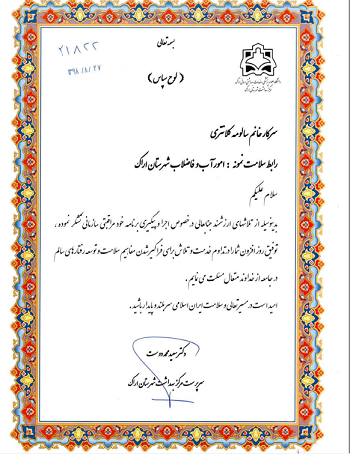 بسمه تعالی
۲۱۸۲۲
۳۹۸/۸/۲۷
(لوح سپاس)
سرکار خانم سالومه کلانتری
رابط سلامت نمونه : امور آب و فاضلاب شهرستان اراک
سلام علیکم
بدینوسیله از تلاشهای ارزشمند جنابعالی در خصوص اجرا و پیگیری برنامه خود مراقبتی سازمانی تشکر نموده ،
توفیق روز افزون شما را در تداوم خدمت و تلاش برای فراگیر شدن مفاهیم سلامت و توسعه رفتارهای سالم
در جامعه از خداوند متعال مسئلت می نمایم .
امید است در مسیر تعالی و سلامت ایران اسلامی سربلند و پایدار باشید .
دکتر سعید محمددوست
سرپرست مرکز بهداشت شهرستان اراک